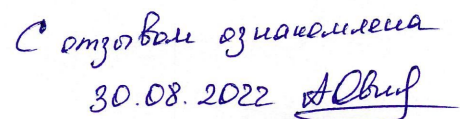 С отзывом ознакомлена
30.08.2022